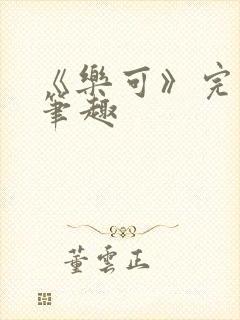 《樂可》完
筆趣
董雲正